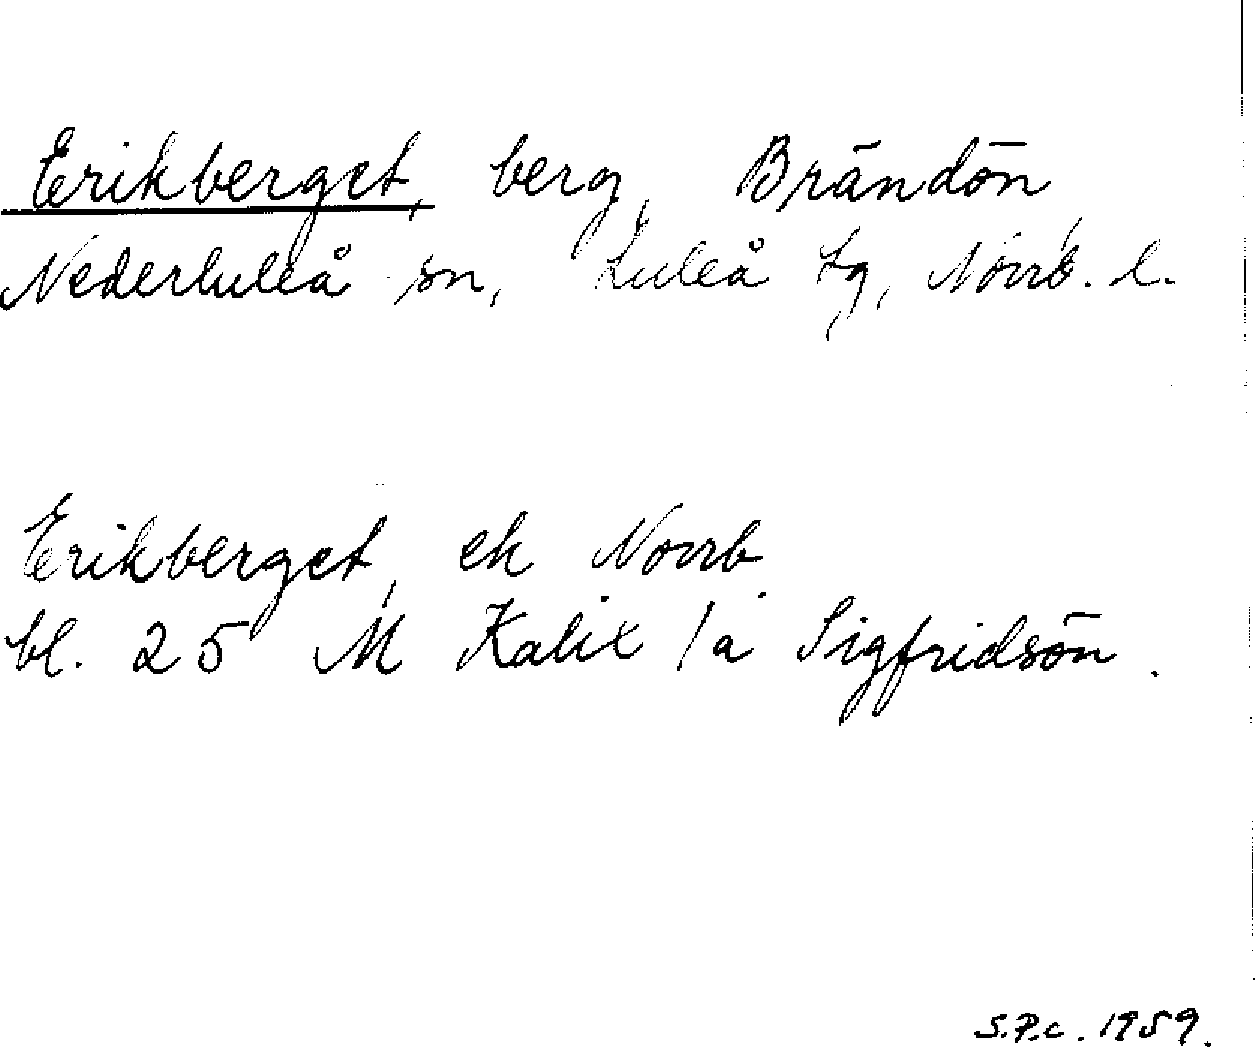 Erikberget, berg, Brändön,
Nederluleå sn, Luleå tg, Norrb. l.
Erikberget, ek Norrb.
bl. 25 M Kalix /å Sigfridsön.
S.P.C. 1959.